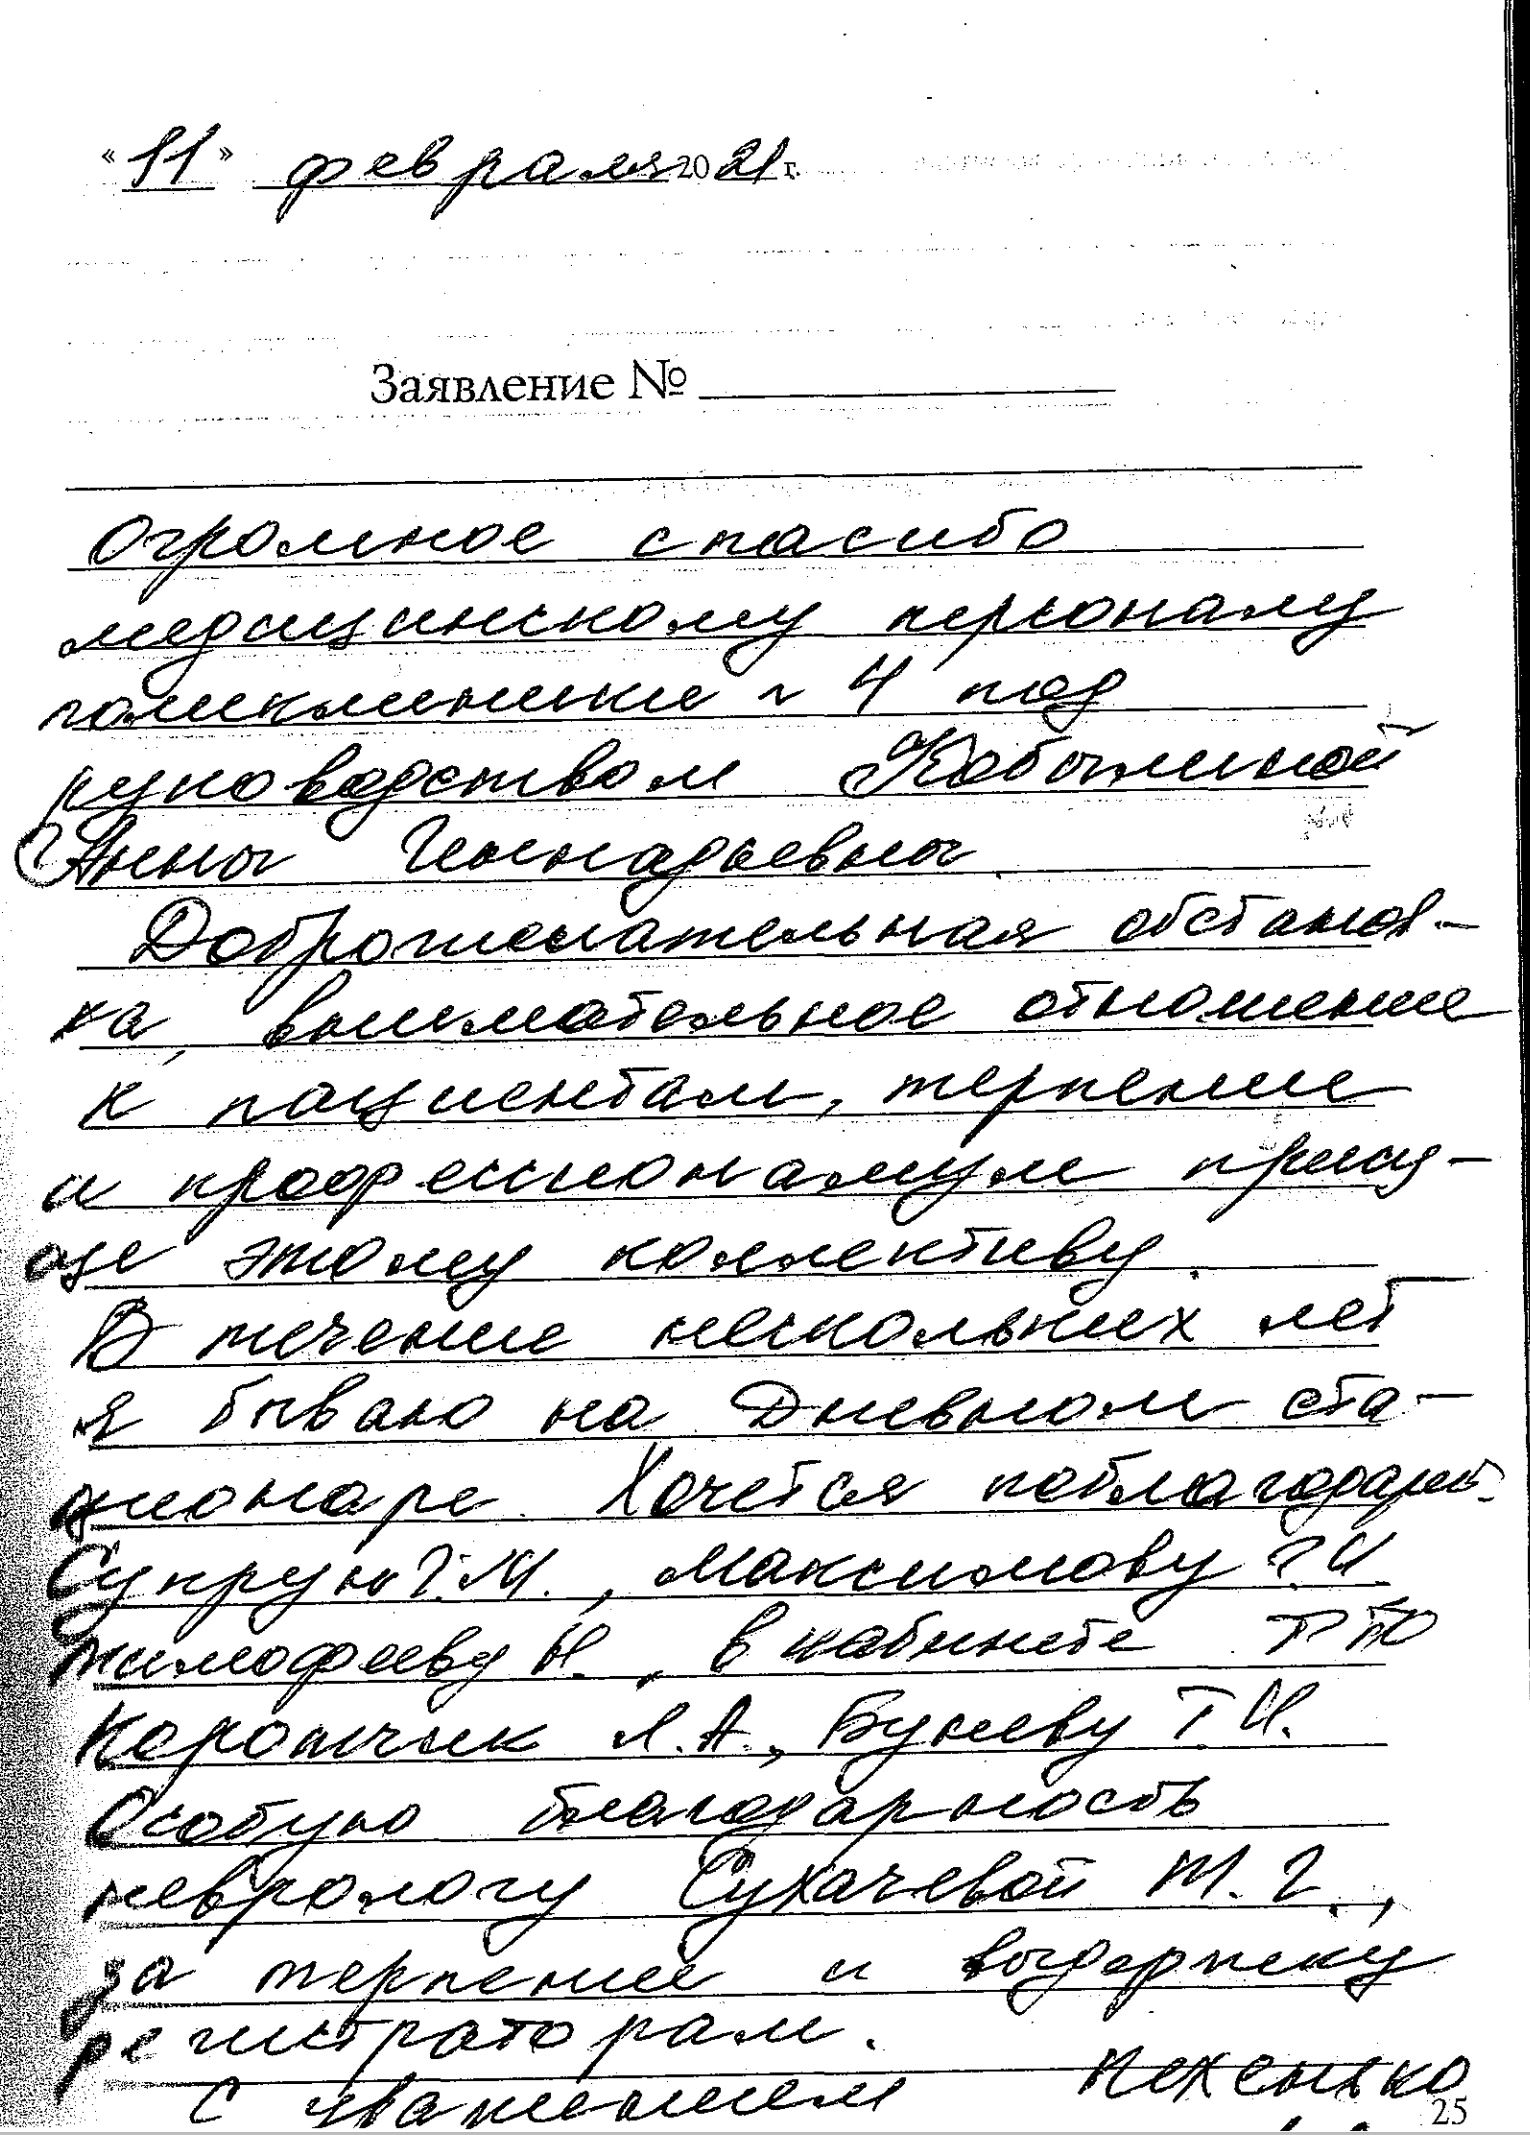 «11» февраля 2021 г.
Заявление №
Огромное спасибо
медицинскому персоналу
поликлиники № 4 под
руководством Кобылиной
Анны Геннадьевны.
Доброжелательная обстанов-
ка, внимательное отношение
к пациентам, терпение
и профессионализм прису-
ще этому коллективу.
В течение нескольких лет
я бываю на Дневном ста-
ционаре. Хочется поблагодарить
Супрун Г.М., Максимову Г.И.
Тимофееву Н., в кабинете
Коротчик Л.А., Буневу Т.И.
Особую благодарность
неврологу Сухачевой Т.Г.,
за терпение и выдержку
регистраторам.
С уважением Пехенько
25